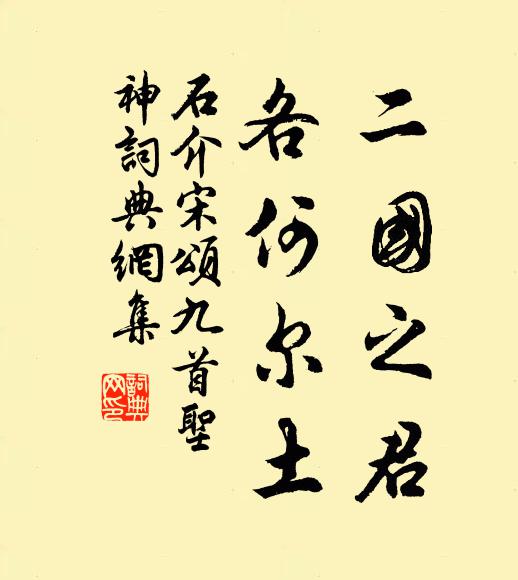 二國之君
各何尔土
石介宋頌九首聖
神詞典網集
詞典
网印